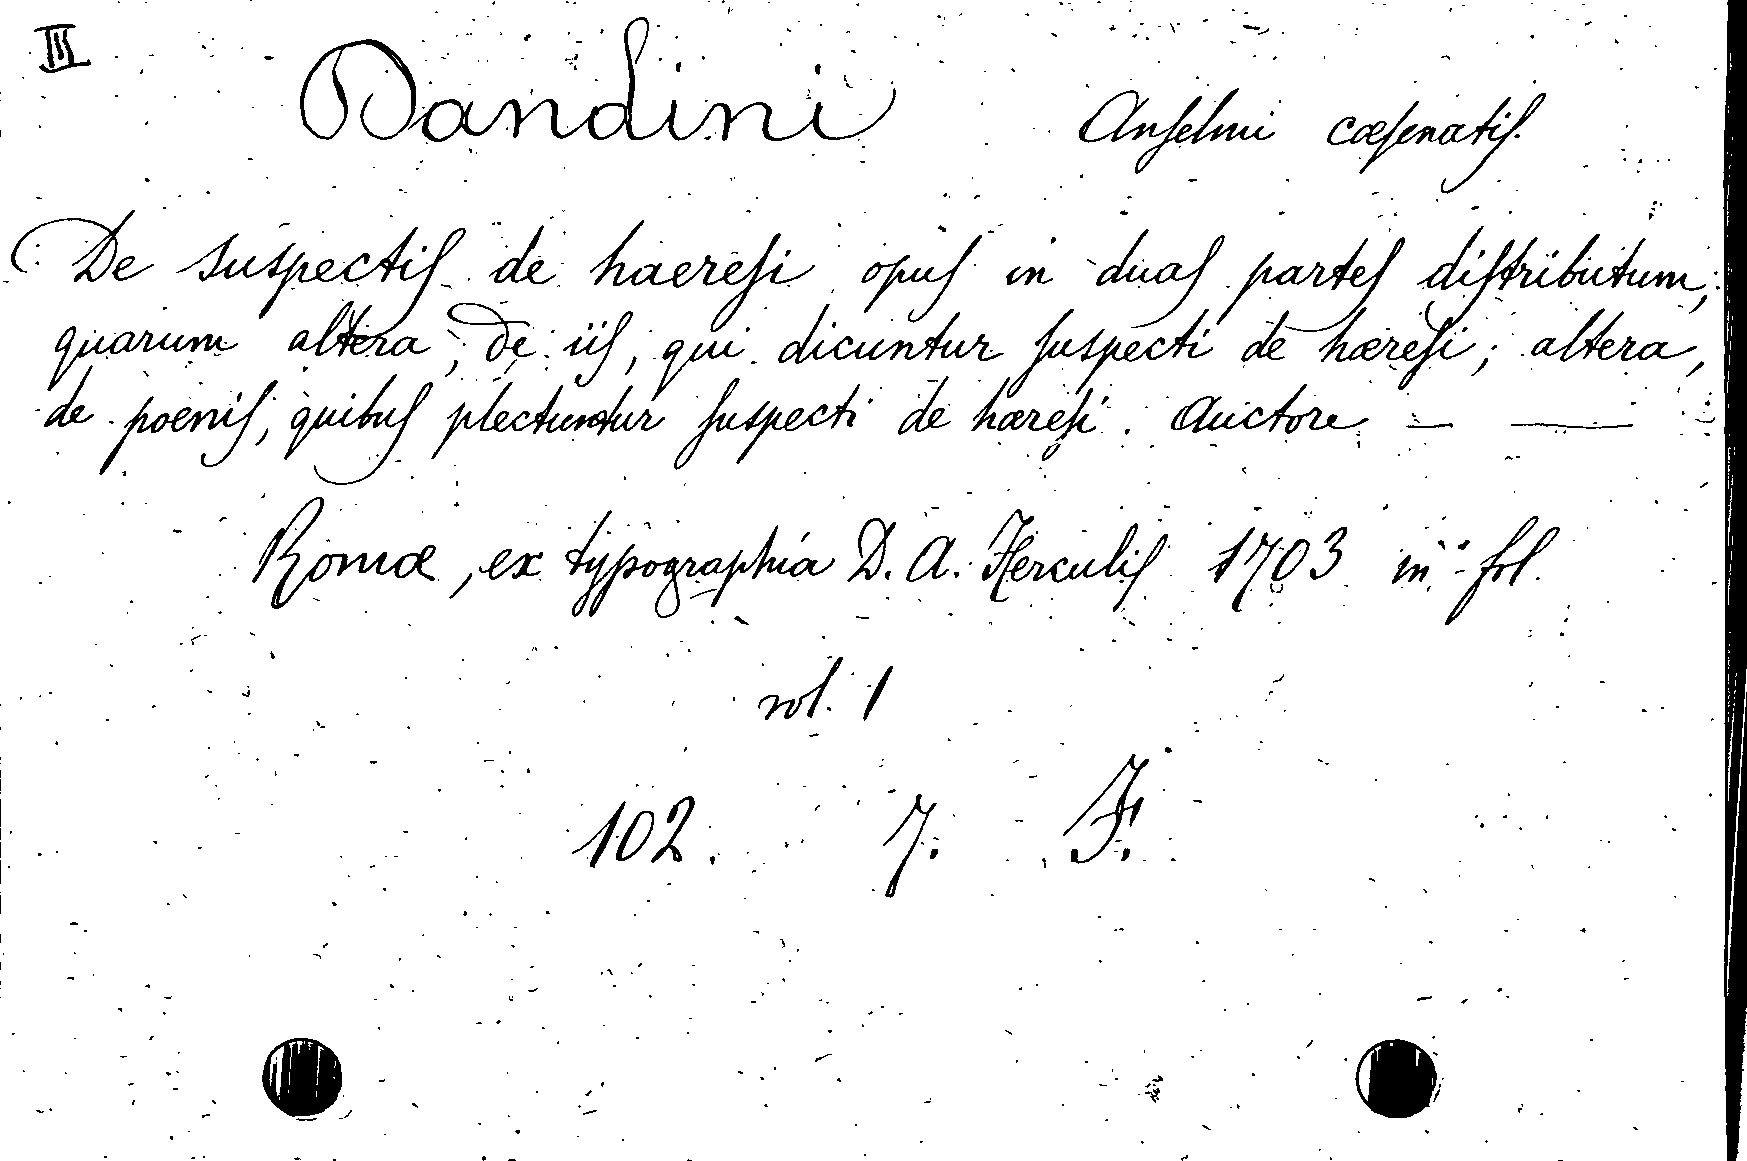 III
Dandini Anselmi cæsenatis.
De suspectis de haeresi opus in duas partes distributum,
quarum altera, de iis, qui dicuntur suspecti de hæresi; altera,
de poenis, quibus plectuntur suspecti de hæresi. Auctore — —
Romæ, ex typographia D. A. Herculis 1703 in-fol.
vol. 1
102. 7. F.